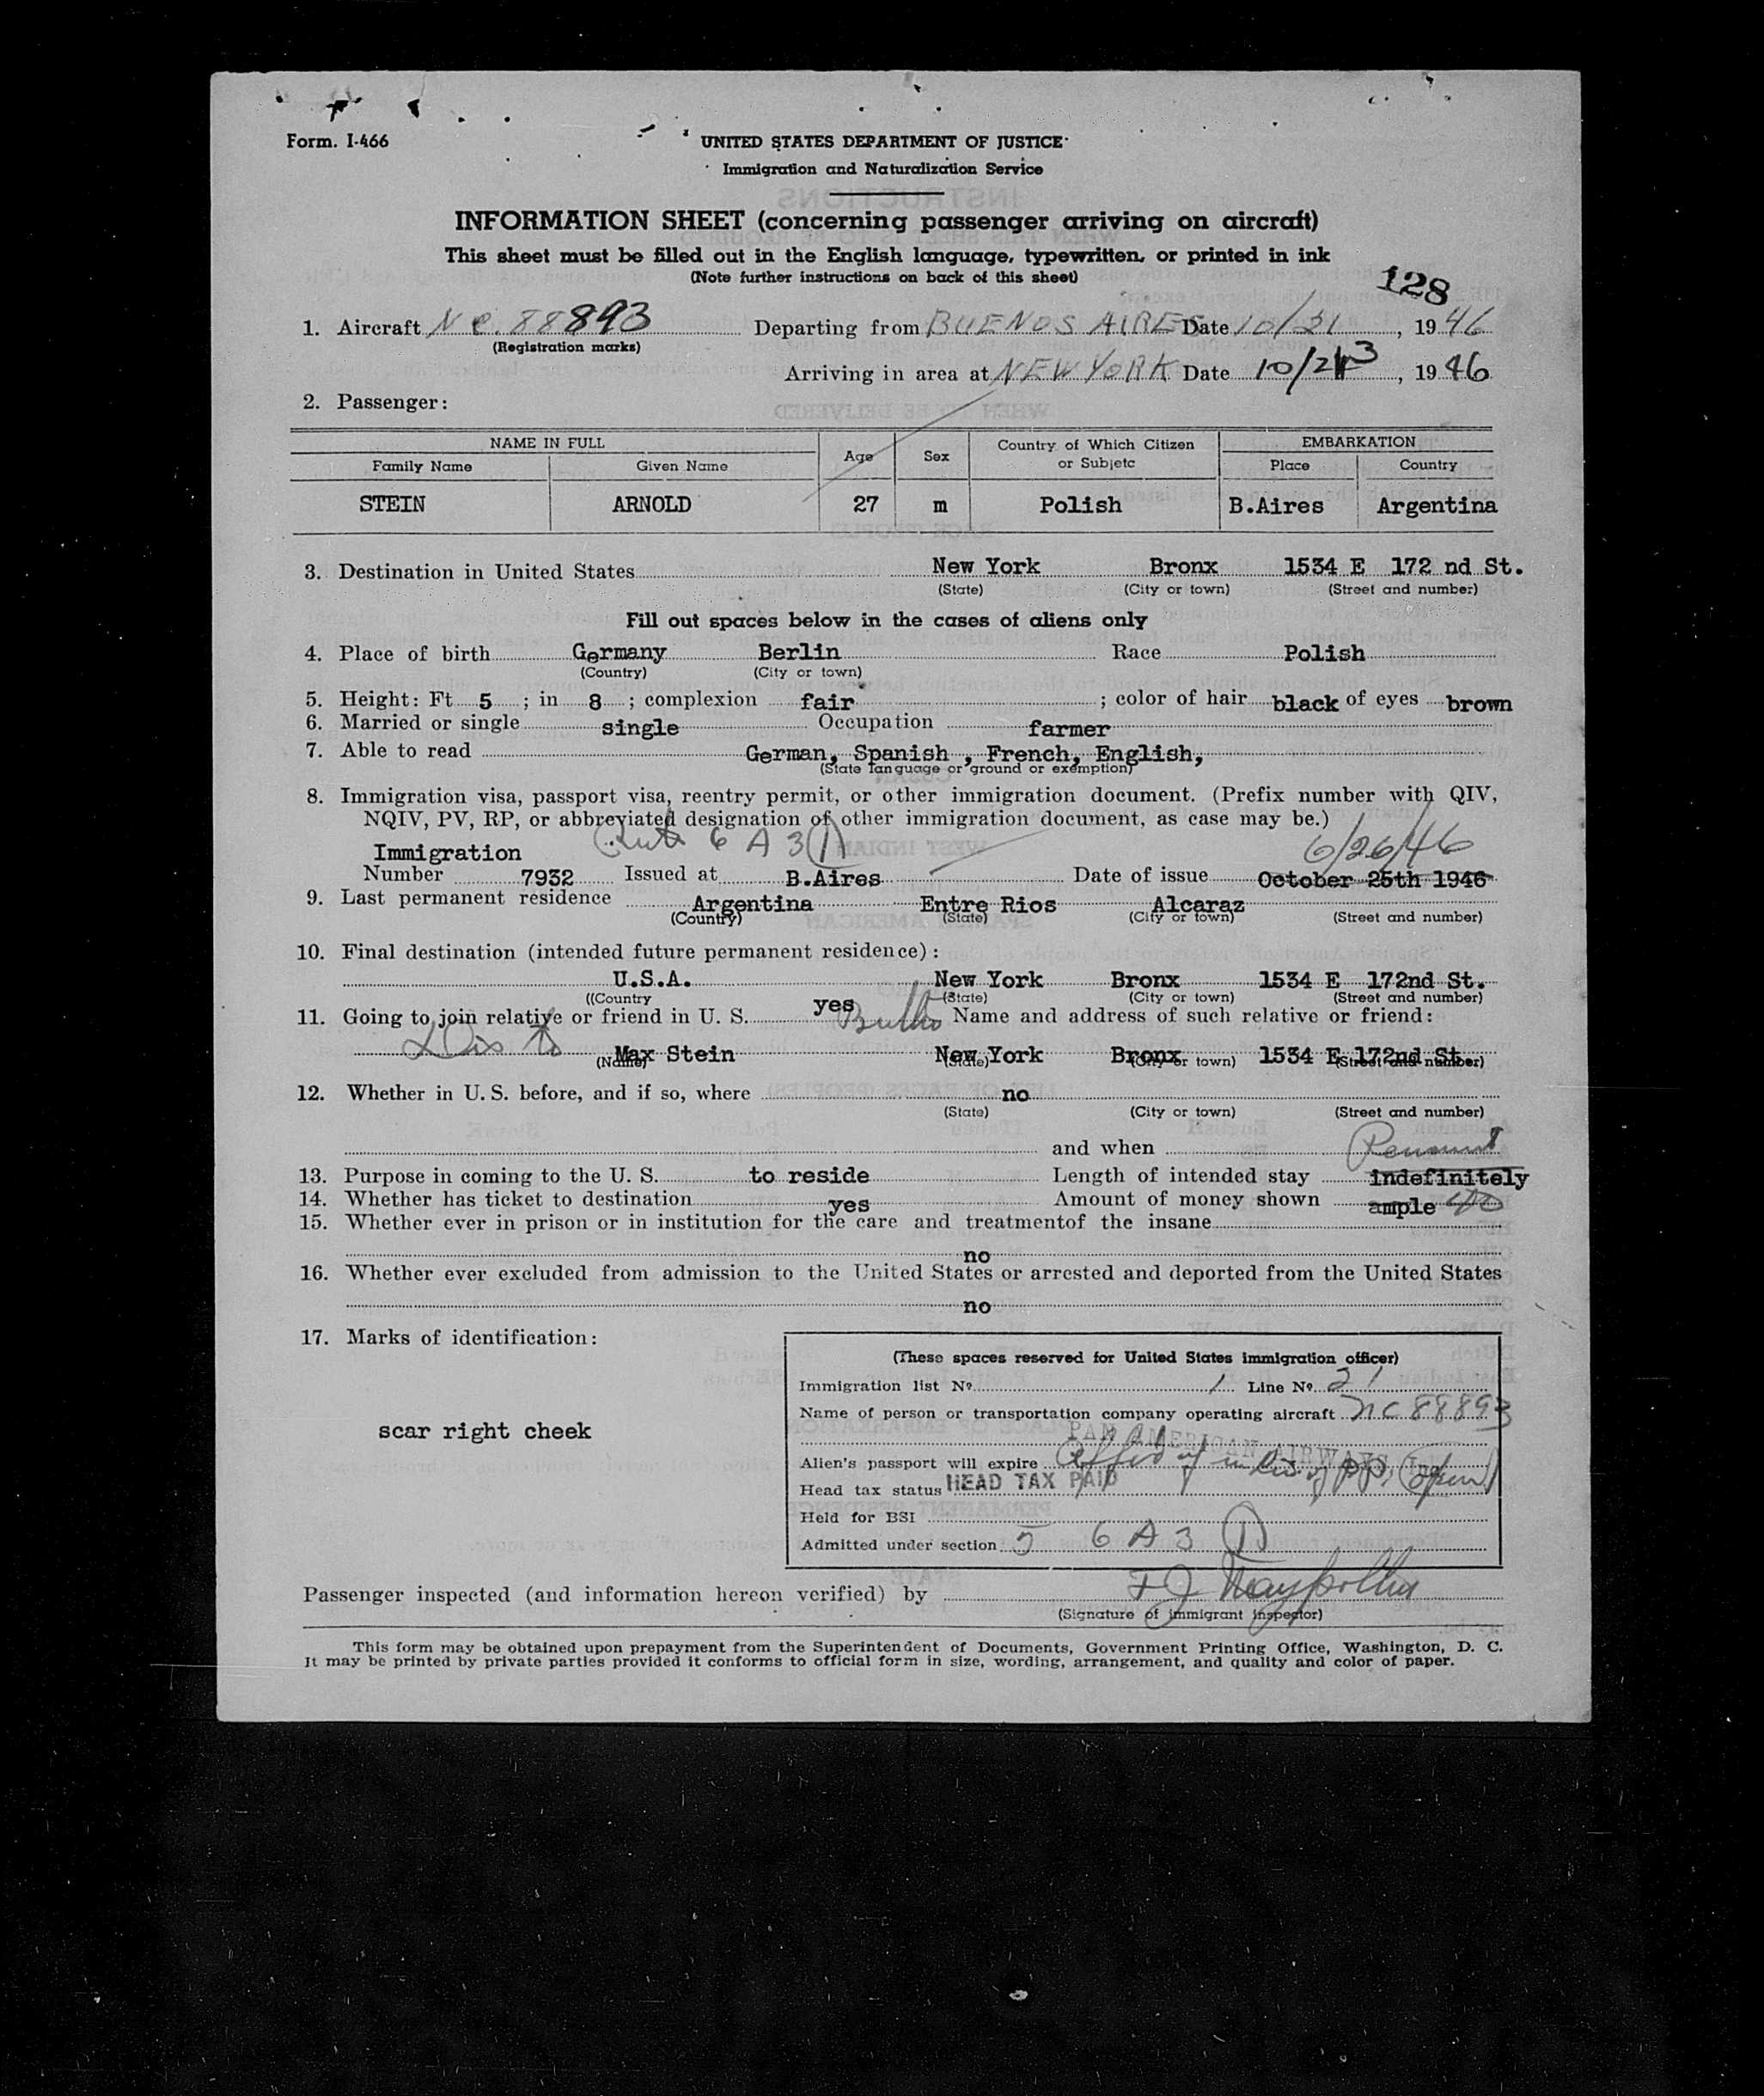 Form. I-466
UNITED STATES DEPARTMENT OF JUSTICE
Immigration and Naturalization Service
INFORMATION SHEET (concerning passenger arriving on aircraft)
This sheet must be filled out in the English language, typewritten, or printed in ink
(Note further instructions on back of this sheet)
128
1. Aircraft N C. 88893 Departing from BUENOS AIRES Date 10/21, 1946
(Registration marks)
Arriving in area at NEW YORK Date 10/23, 1946
2. Passenger:
NAME IN FULL Age Sex Country of Which Citizen or Subjetc EMBARKATION
Family Name Given Name Place Country
STEIN ARNOLD 27 m Polish B.Aires Argentina
3. Destination in United States New York Bronx 1534 E 172 nd St.
(State) (City or town) (Street and number)
Fill out spaces below in the cases of aliens only
4. Place of birth Germany Berlin Race Polish
(Country) (City or town)
5. Height: Ft 5 ; in 8 ; complexion fair ; color of hair black of eyes brown
6. Married or single single Occupation farmer
7. Able to read German, Spanish , French, English,
(State language or ground or exemption)
8. Immigration visa, passport visa, reentry permit, or other immigration document. (Prefix number with QIV,
NQIV, PV, RP, or abbreviated designation of other immigration document, as case may be.)
6 A 3 (1) 6/26/46
Immigration
Number 7932 Issued at B.Aires Date of issue October 25th 1946
9. Last permanent residence Argentina Entre Rios Alcaraz
(Country) (State) (City or town) (Street and number)
10. Final destination (intended future permanent residence):
U.S.A. New York Bronx 1534 E 172nd St.
((Country (State) (City or town) (Street and number)
11. Going to join relative or friend in U. S. yes Name and address of such relative or friend:
Max Stein New York Bronx 1534 E 172nd St.
(Name) (State) (City or town) (Street and number)
12. Whether in U. S. before, and if so, where no
(State) (City or town) (Street and number)
and when
13. Purpose in coming to the U. S. to reside Length of intended stay indefinitely
14. Whether has ticket to destination yes Amount of money shown ample
15. Whether ever in prison or in institution for the care and treatmentof the insane
no
16. Whether ever excluded from admission to the United States or arrested and deported from the United States
no
17. Marks of identification:
scar right cheek
(These spaces reserved for United States immigration officer)
Immigration list Nº 1 Line Nº 21
Name of person or transportation company operating aircraft NC 88893
PAN AMERICAN AIRWAYS, Inc.
Alien's passport will expire
Head tax status HEAD TAX PAID
Held for BSI
Admitted under section 5 6 A 3 (1)
Passenger inspected (and information hereon verified) by
(Signature of immigrant inspector)
This form may be obtained upon prepayment from the Superintendent of Documents, Government Printing Office, Washington, D. C.
It may be printed by private parties provided it conforms to official form in size, wording, arrangement, and quality and color of paper.